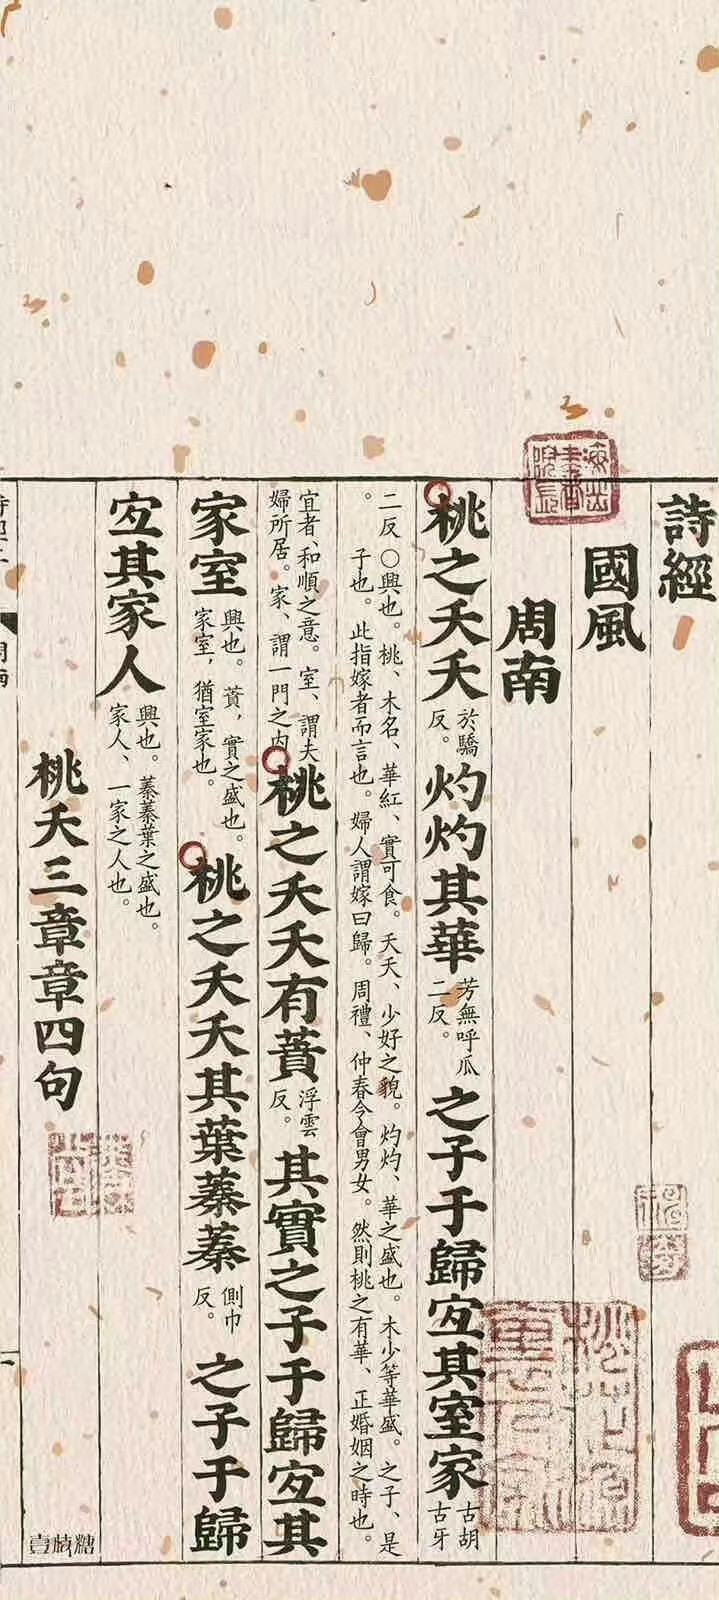 詩經
國風
周南
桃之夭夭於驕反。灼灼其華芳無呼瓜二反。之子于歸宐其室家古胡古牙
二反〇興也。桃、木名、華紅、實可食。夭夭、少好之貌。灼灼、華之盛也。木少等華盛。之子、是
。子也。此指嫁者而言也。婦人謂嫁曰歸。周禮、仲春令會男女。然則桃之有華、正婚姻之時也。
宜者、和順之意。室、謂夫婦所居。家、謂一門之内桃之夭夭有蕡浮雲反。其實之子于歸宐其
家室興也。蕡，實之盛也。家室，猶室家也。桃之夭夭其葉蓁蓁側巾反。之子于歸
宐其家人興也。蓁蓁葉之盛也。家人、一家之人也。
桃夭三章章四句